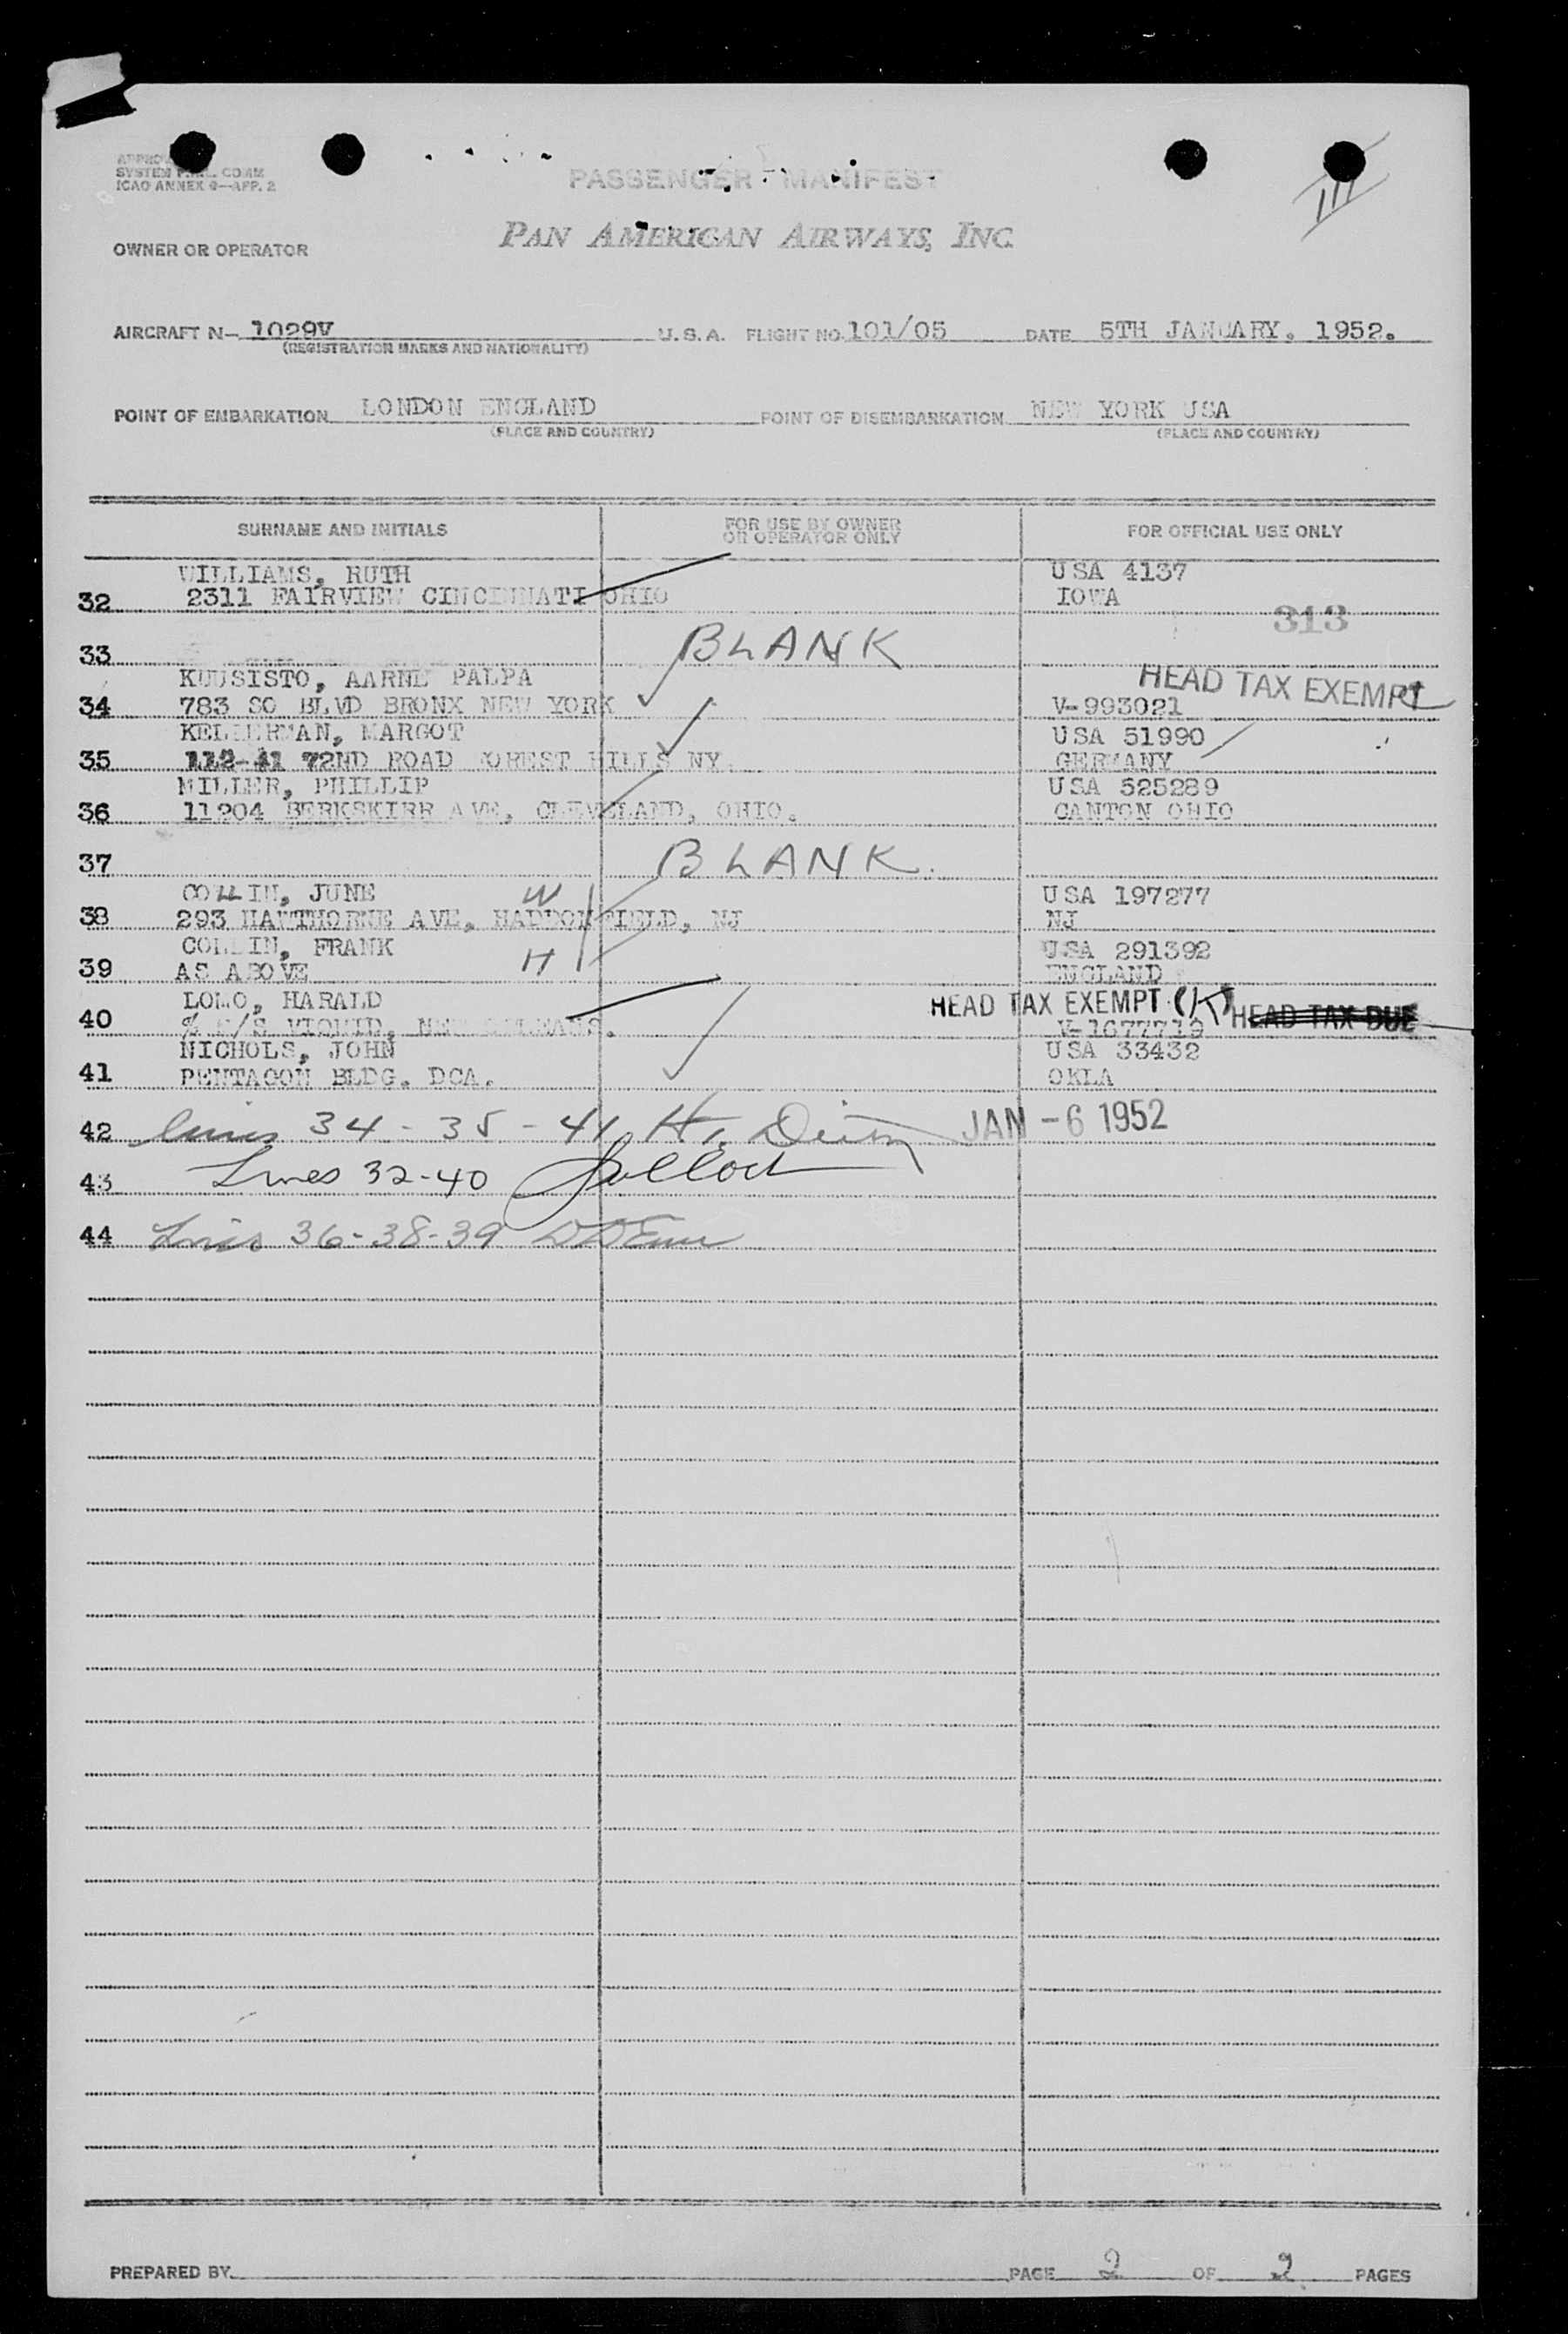 SYSTEM COMM
ICAO ANNEX 9—APP. 2
PASSENGER MANIFEST
PAN AMERICAN AIRWAYS, INC.
OWNER OR OPERATOR
AIRCRAFT N— 1029V U.S.A. FLIGHT NO. 101/05 DATE 5TH JANUARY. 1952.
(REGISTRATION MARKS AND NATIONALITY)
POINT OF EMBARKATION LONDON ENGLAND POINT OF DISEMBARKATION NEW YORK USA
(PLACE AND COUNTRY) (PLACE AND COUNTRY)
SURNAME AND INITIALS FOR USE BY OWNER OR OPERATOR ONLY FOR OFFICIAL USE ONLY
WILLIAMS, RUTH USA 4137
32 2311 FAIRVIEW CINCINNATI OHIO IOWA
313
33 BLANK
KUUSISTO, AARNE PALPA HEAD TAX EXEMPT
34 783 SO BLVD BRONX NEW YORK V-993021
KELLERMAN, MARGOT USA 51990
35 112-41 72ND ROAD FOREST HILLS NY. GERMANY
MILLER, PHILLIP USA 525289
36 11204 BERKSKIRR AVE, CLEVELAND, OHIO. CANTON OHIO
37 BLANK.
COLLIN, JUNE W USA 197277
38 293 HAWTHORNE AVE, HADDONFIELD, NJ NJ
COLLIN, FRANK H USA 291392
39 AS ABOVE ENGLAND
LOMO, HARALD HEAD TAX EXEMPT (K) HEAD TAX DUE
40 % M/S VIQUID, NEW ORLEANS. V-1677719
NICHOLS, JOHN USA 33432
41 PENTAGON BLDG. DCA. OKLA
42 Lines 34 - 35 - 41 H. JAN -6 1952
43 Lines 32-40
44 Lines 36-38-39
PREPARED BY PAGE 2 OF 2 PAGES